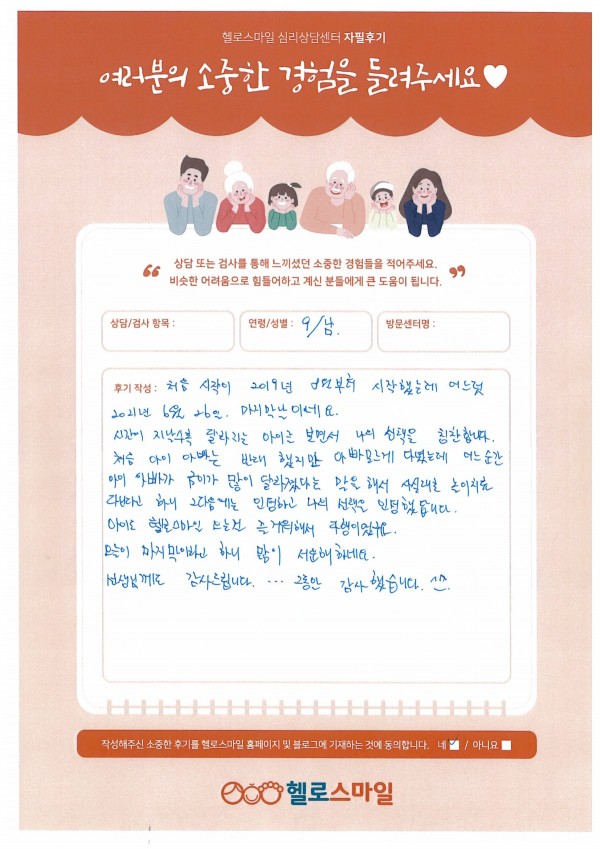 헬로스마일 심리상담센터 자필후기
여러분의 소중한 경험을 들려주세요♥
“ 상담 또는 검사를 통해 느끼셨던 소중한 경험들을 적어주세요.
비슷한 어려움으로 힘들어하고 계신 분들에게 큰 도움이 됩니다. ”
상담/검사 항목 :
연령/성별 : 9/남.
방문센터명 :
후기 작성 : 처음 시작이 2019년 부터 시작했는데 어느덧
2021년 6월 26일. 마지막날이네요.
시간이 지날수록 달라지는 아이를 보면서 나의 선택을 칭찬합니다.
처음 아이 아빠는 반대 했지만 아빠모르게 다녔는데 어느순간
아이 아빠가 많이 달라졌다는 말을 해서 사실대로 놀이치료
다닌다고 하니 그다음에는 인정하고 나의 선택을 인정했습니다.
아이도 헬로스마일 오는걸 즐거워해서 다행이었구요.
오늘이 마지막이라고 하니 많이 서운해하네요.
선생님께도 감사드립니다. ... 그동안 감사했습니다. ^^.
작성해주신 소중한 후기를 헬로스마일 홈페이지 및 블로그에 기재하는 것에 동의합니다. 네 ☑ / 아니요 ☐
헬로스마일